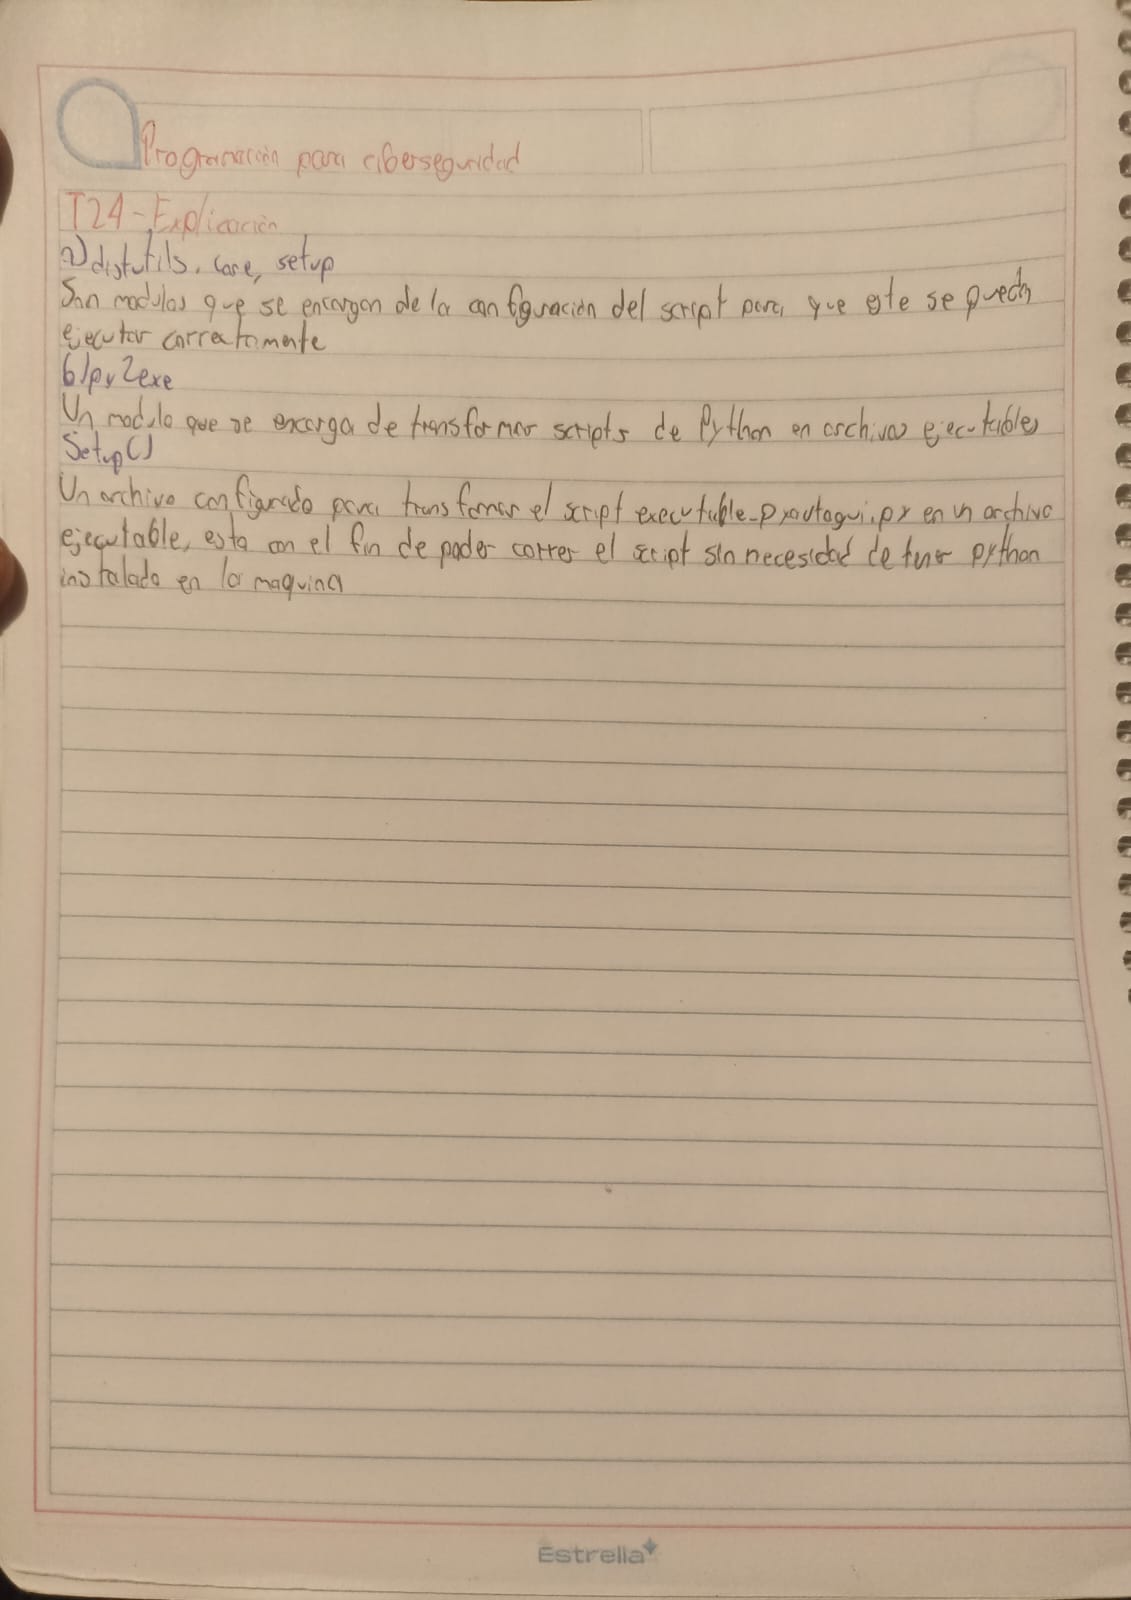 Programación para ciberseguridad
T24-Explicación
a) distutils. core, setup
Son modulos que se encargan de la configuración del script para que este se pueda
ejecutar correctamente
b) py2exe
Un modulo que se encarga de transformar scripts de Python en archivos ejecutables
Setup()
Un archivo configurado para transformar el script executable_pyautogui.py en un archivo
ejecutable, esto con el fin de poder correr el script sin necesidad de tener python
instalado en la maquina
Estrella